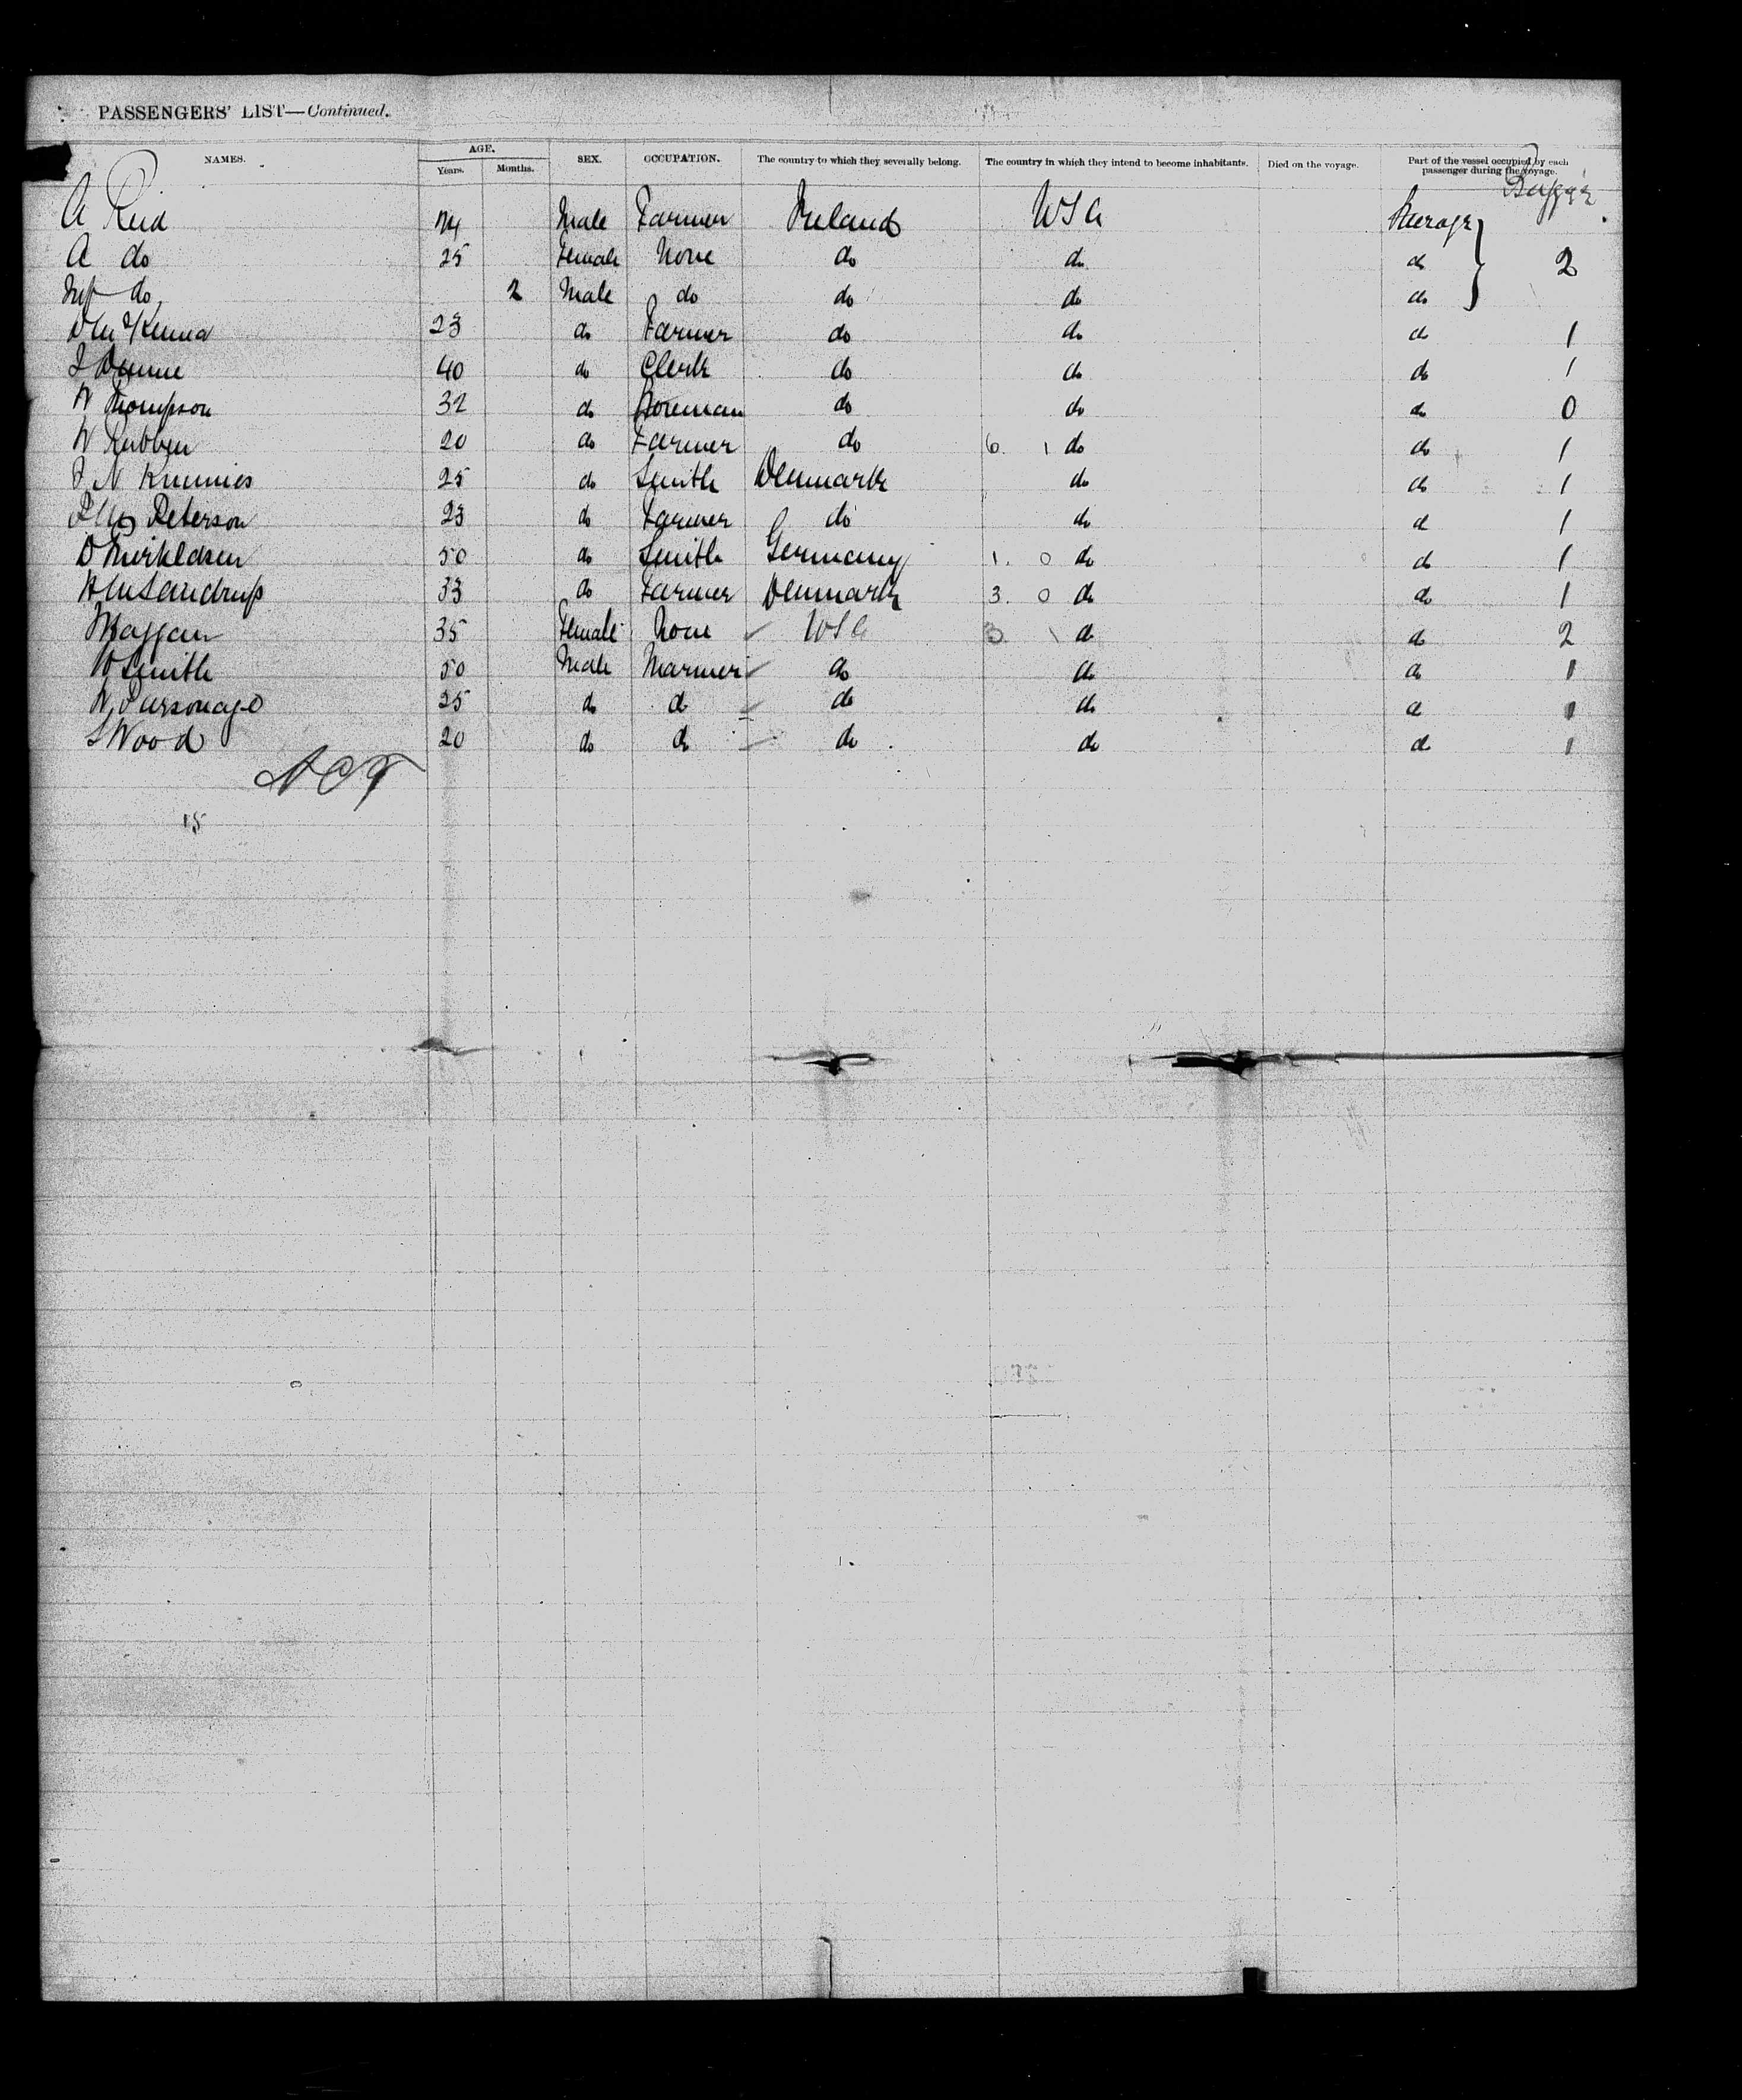 PASSENGERS' LIST—Continued.
NAMES. AGE. Years. Months. SEX. OCCUPATION. The country to which they severally belong. The country in which they intend to become inhabitants. Died on the voyage. Part of the vessel occupied by each passenger during the voyage.
A Reid Male Farmer Ireland USA Steerage
A do 25 Female None do do do 2
Inft do 2 Male do do do do
23 do Farmer do do do 1
40 do Clerk do do do 1
W Thompson 32 do do do do 0
20 do Farmer do 6. 1 do do 1
25 do Smith Denmark do do 1
Peterson 23 do Farmer do do do 1
50 do Smith Germany 1. 0 do do 1
33 do Farmer Denmark 3. 0 do do 1
35 Female None USA do do 2
W Smith 50 Male Mariner do do do 1
W Parsonage 25 do do do do do 1
S Wood 20 do do do do do 1
15